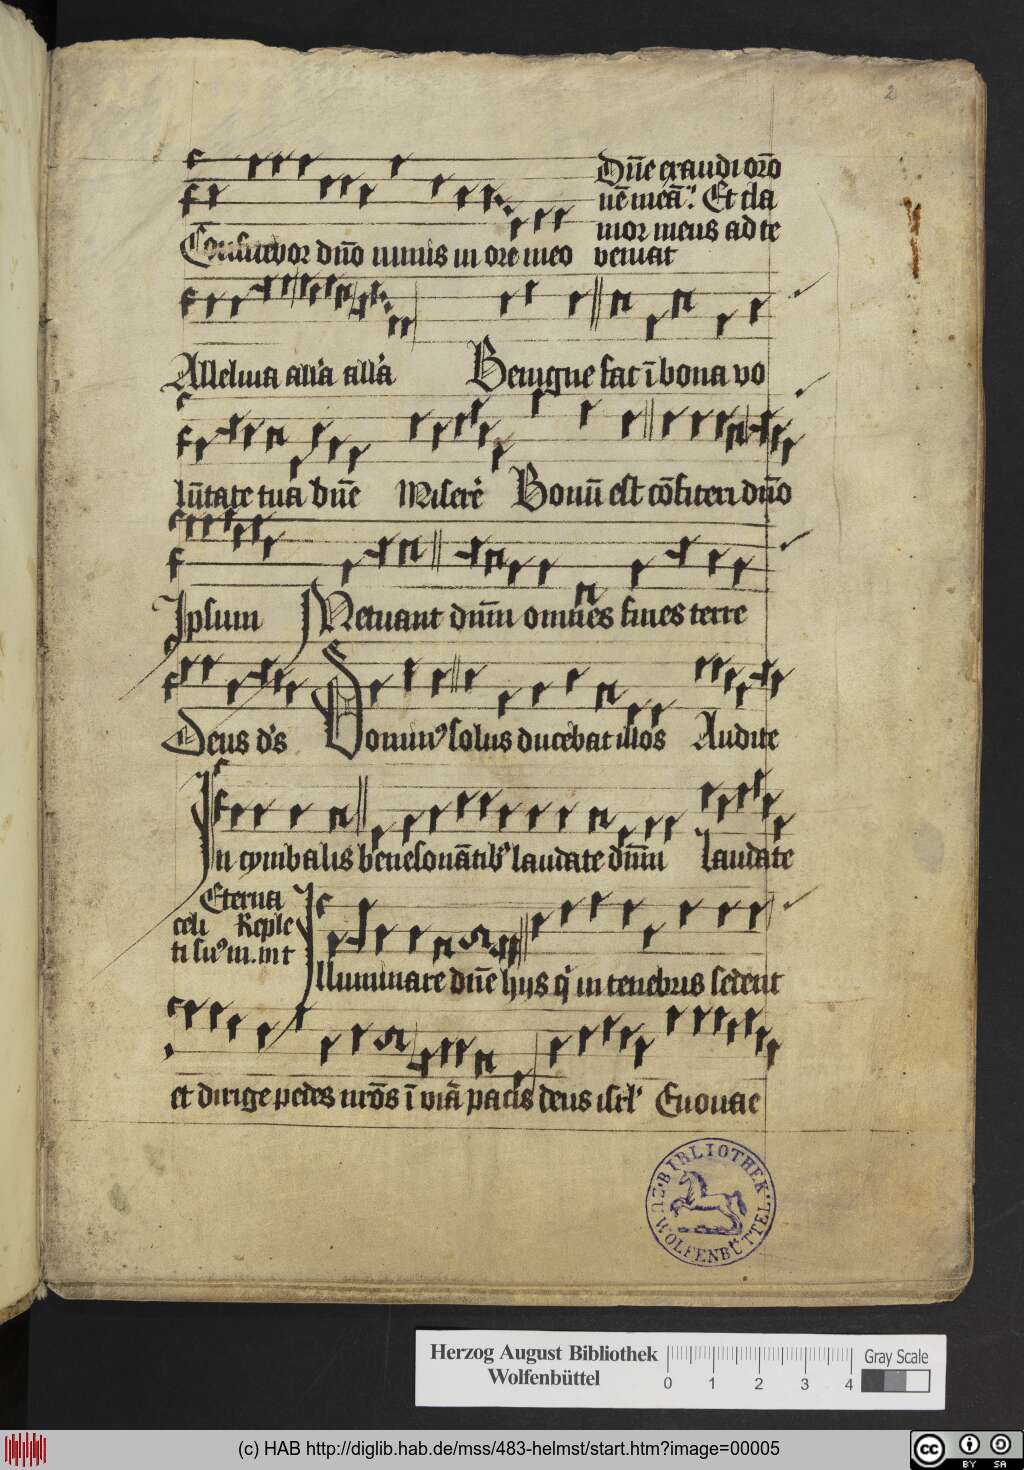 2
Dn̄e exaudi or̄o
nē meā: Et cla
mor meus ad te
Confitebor dn̄o nimis in ore meo veniat
Alleluia all'a all'a Benigne fac ī bona vo
lūtate tua dn̄e Misere Bonū est cōfiteri dn̄o
Ipsum Metuant dn̄m omnes fines terre
Deus d's Dominꝰ solus ducebat illos Audite
In cymbalis benesonātibꝰ laudate dn̄m Laudate
Eterna
celi Reple
ti suꝰ in. int
Illuminare dn̄e hijs q' in tenebris sedent
et dirige pedes nr̄os ī viā pacis deus isrl' Euouae
BIBLIOTHEK
ZU WOLFENBÜTTEL
Herzog August Bibliothek
Wolfenbüttel
0 1 2 3 4
Gray Scale
(c) HAB http://diglib.hab.de/mss/483-helmst/start.htm?image=00005
cc BY SA